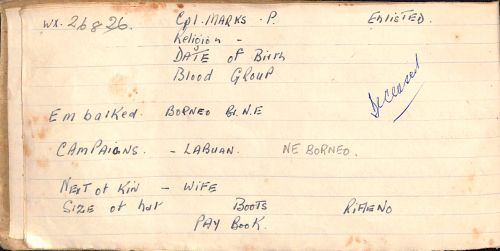 WX. 26826. Cpl. MARKS - P. ENLISTED.
Religion -
DATE of Birth
Blood Group
Deceased
Embarked. BORNEO Br. N.E
CAMPAIGNS. - LABUAN. NE BORNEO.
NEXT of KIN - WIFE
SIZE of hat BOOTS RIFLE NO
PAY BOOK.